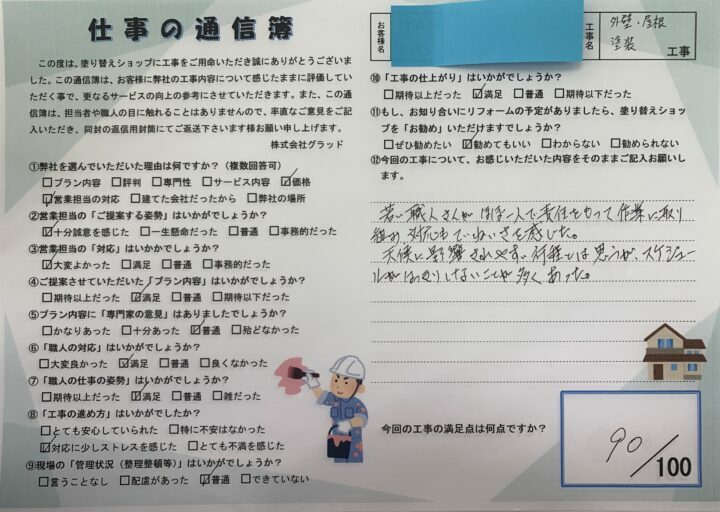 仕事の通信簿
この度は、塗り替えショップに工事をご用命いただき誠にありがとうございま
した。この通信簿は、お客様に弊社の工事内容について感じたままに評価してい
ただく事で、更なるサービスの向上の参考にさせていただきます。また、この通
信簿は、担当者や職人の目に触れることはありませんので、率直なご意見をご記
入いただき、同封の返信用封筒にてご返送下さいます様お願い申し上げます。
株式会社グラッド
①弊社を選んでいただいた理由は何ですか?(複数回答可)
□プラン内容 □評判 □専門性 □サービス内容 ☑価格
☑営業担当の対応 □建てた会社だったから □弊社の場所
②営業担当の「ご提案する姿勢」はいかがでしょうか?
☑十分誠意を感じた □一生懸命だった □普通 □事務的だった
③営業担当の「対応」はいかかでしょうか?
☑大変よかった □満足 □普通 □事務的だった
④ご提案させていただいた「プラン内容」はいかがでしょうか?
□期待以上だった ☑満足 □普通 □期待以下だった
⑤プラン内容に「専門家の意見」はありましたでしょうか?
□かなりあった □十分あった ☑普通 □殆どなかった
⑥「職人の対応」はいかがでしょうか?
□大変良かった ☑満足 □普通 □良くなかった
⑦「職人の仕事の姿勢」はいかがでしょうか?
□期待以上だった ☑満足 □普通 □雑だった
⑧「工事の進め方」はいかがでしたか?
□とても安心していられた □特に不安はなかった
☑対応に少しストレスを感じた □とても不満を感じた
⑨現場の「管理状況(整理整頓等)」はいかがでしょうか?
□言うことなし □配慮があった ☑普通 □できていない
お客様名
工事名
外壁・屋根
塗装
工事
⑩「工事の仕上がり」はいかがでしょうか?
□期待以上だった ☑満足 □普通 □期待以下だった
⑪もし、お知り合いにリフォームの予定がありましたら、塗り替えショッ
プを「お勧め」いただけますでしょうか?
□ぜひ勧めたい ☑勧めてもいい □わからない □勧められない
⑫今回の工事について、お感じいただいた内容をそのままご記入お願いし
ます。
若い職人さんがほぼ一人で責任をもって作業に取り
組み、対応もていねいさを感じた。
天候に影響されやすい行程とは思うが、スケジュー
ルがはっきりしないことが多くあった。
今回の工事の満足点は何点ですか?
90/100